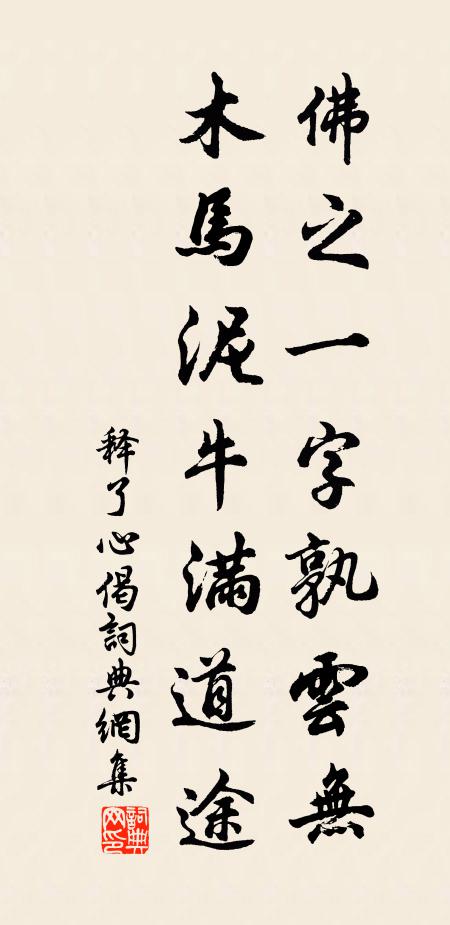 佛之一字孰雲無
木馬泥牛滿道途
释了心偈詞典網集
詞典网印